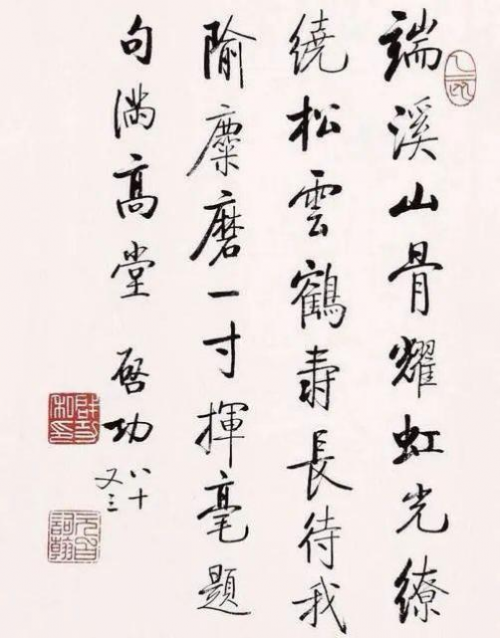 端溪山骨耀虹光繚
繞松雲鶴壽長待我
隃麋磨一寸揮毫題
句滿高堂 啓功
八十
又三
啟功
私印
元白
詞翰